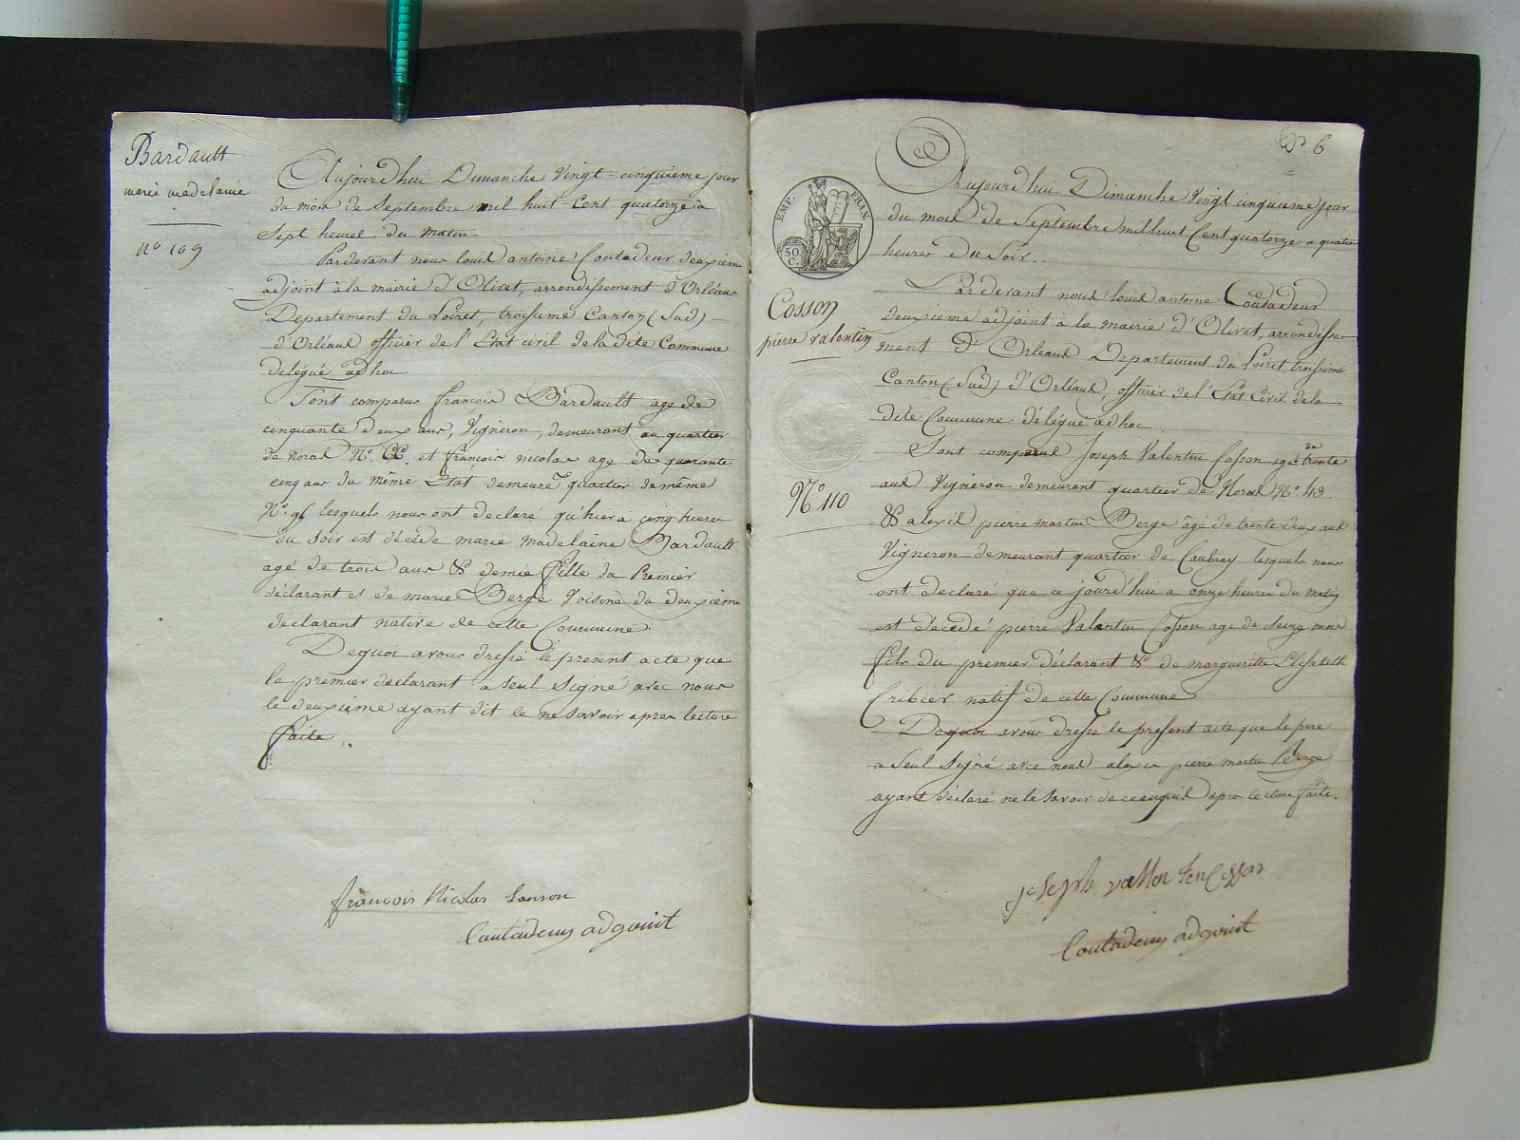 Bardault
marie madelaine
N° 109
Aujourd'hui Dimanche Vingt-cinquieme jour
du mois de Septembre mil huit-Cent quatorze à
Sept heures du matin
Pardevant nous louis antoine Coutadeur deuxieme
adjoint à la mairie d'Olivet, arrondissement d'Orléans
Departement du Loiret, troisieme Canton (Sud)
d'Orléans officier de l'Etat civil de la dite Commune
delégué adhoc
Sont comparus françois Bardault age de
cinquante deux ans, Vigneron, demeurant au quartier
de Noras N°. et françois nicolas age de quarante
cinq ans du même Etat demeure quartier de même
N°. 96 lesquels nous ont declaré qu'hier a cinq heures
du soir est décédé marie madelaine Bardault
agé de trois ans & demie fille du Premier
déclarant et de marie Berge Voisine du deuxieme
declarant native de cette Commune
De quoi avons dressé le présent acte que
le premier declarant a seul Signé avec nous
le deuxieme ayant dit le ne savoir apres lecture
faite.
françois Nicolas Sanson
Coutadeur adgouint
N° 6
EMP. FRAN.
50 C.
Cosson
pierre valentin
N° 110
Aujourd'hui Dimanche Vingt cinquieme jour
du mois de Septembre mil huit Cent quatorze a quatre
heures du Soir..
Pardevant nous louis antoine Coutadeur
deuxieme adjoint à la mairie d'Olivet, arrondisse
ment D'Orleans Departement du Loiret troisieme
Canton (Sud) d'Orléans, officier de l'Etat Civil de la
dite Commune délégué adhoc.
Sont comparus Joseph Valentin Cosson agé de trente
ans Vigneron demeurant quartier de Noras N°. 113
& alexis pierre martin Berge âgé de trente deux ans
Vigneron demeurant quartier de Caubray lesquels nous
ont declaré que ce jourd'hui a onze heures du matin
est décédé pierre Valentin Cosson age de seize mois
fils du premier déclarant & de margueritte Elisabeth
Cribier natif de cette Commune
De quoi avons dressé le présent acte que le pere
a Seul Signé avec nous alexis pierre martin Berge
ayant déclaré ne le Savoir de ce enquis apres lecture faite.
joseph vallenten Cosson
Coutadeur adgouint